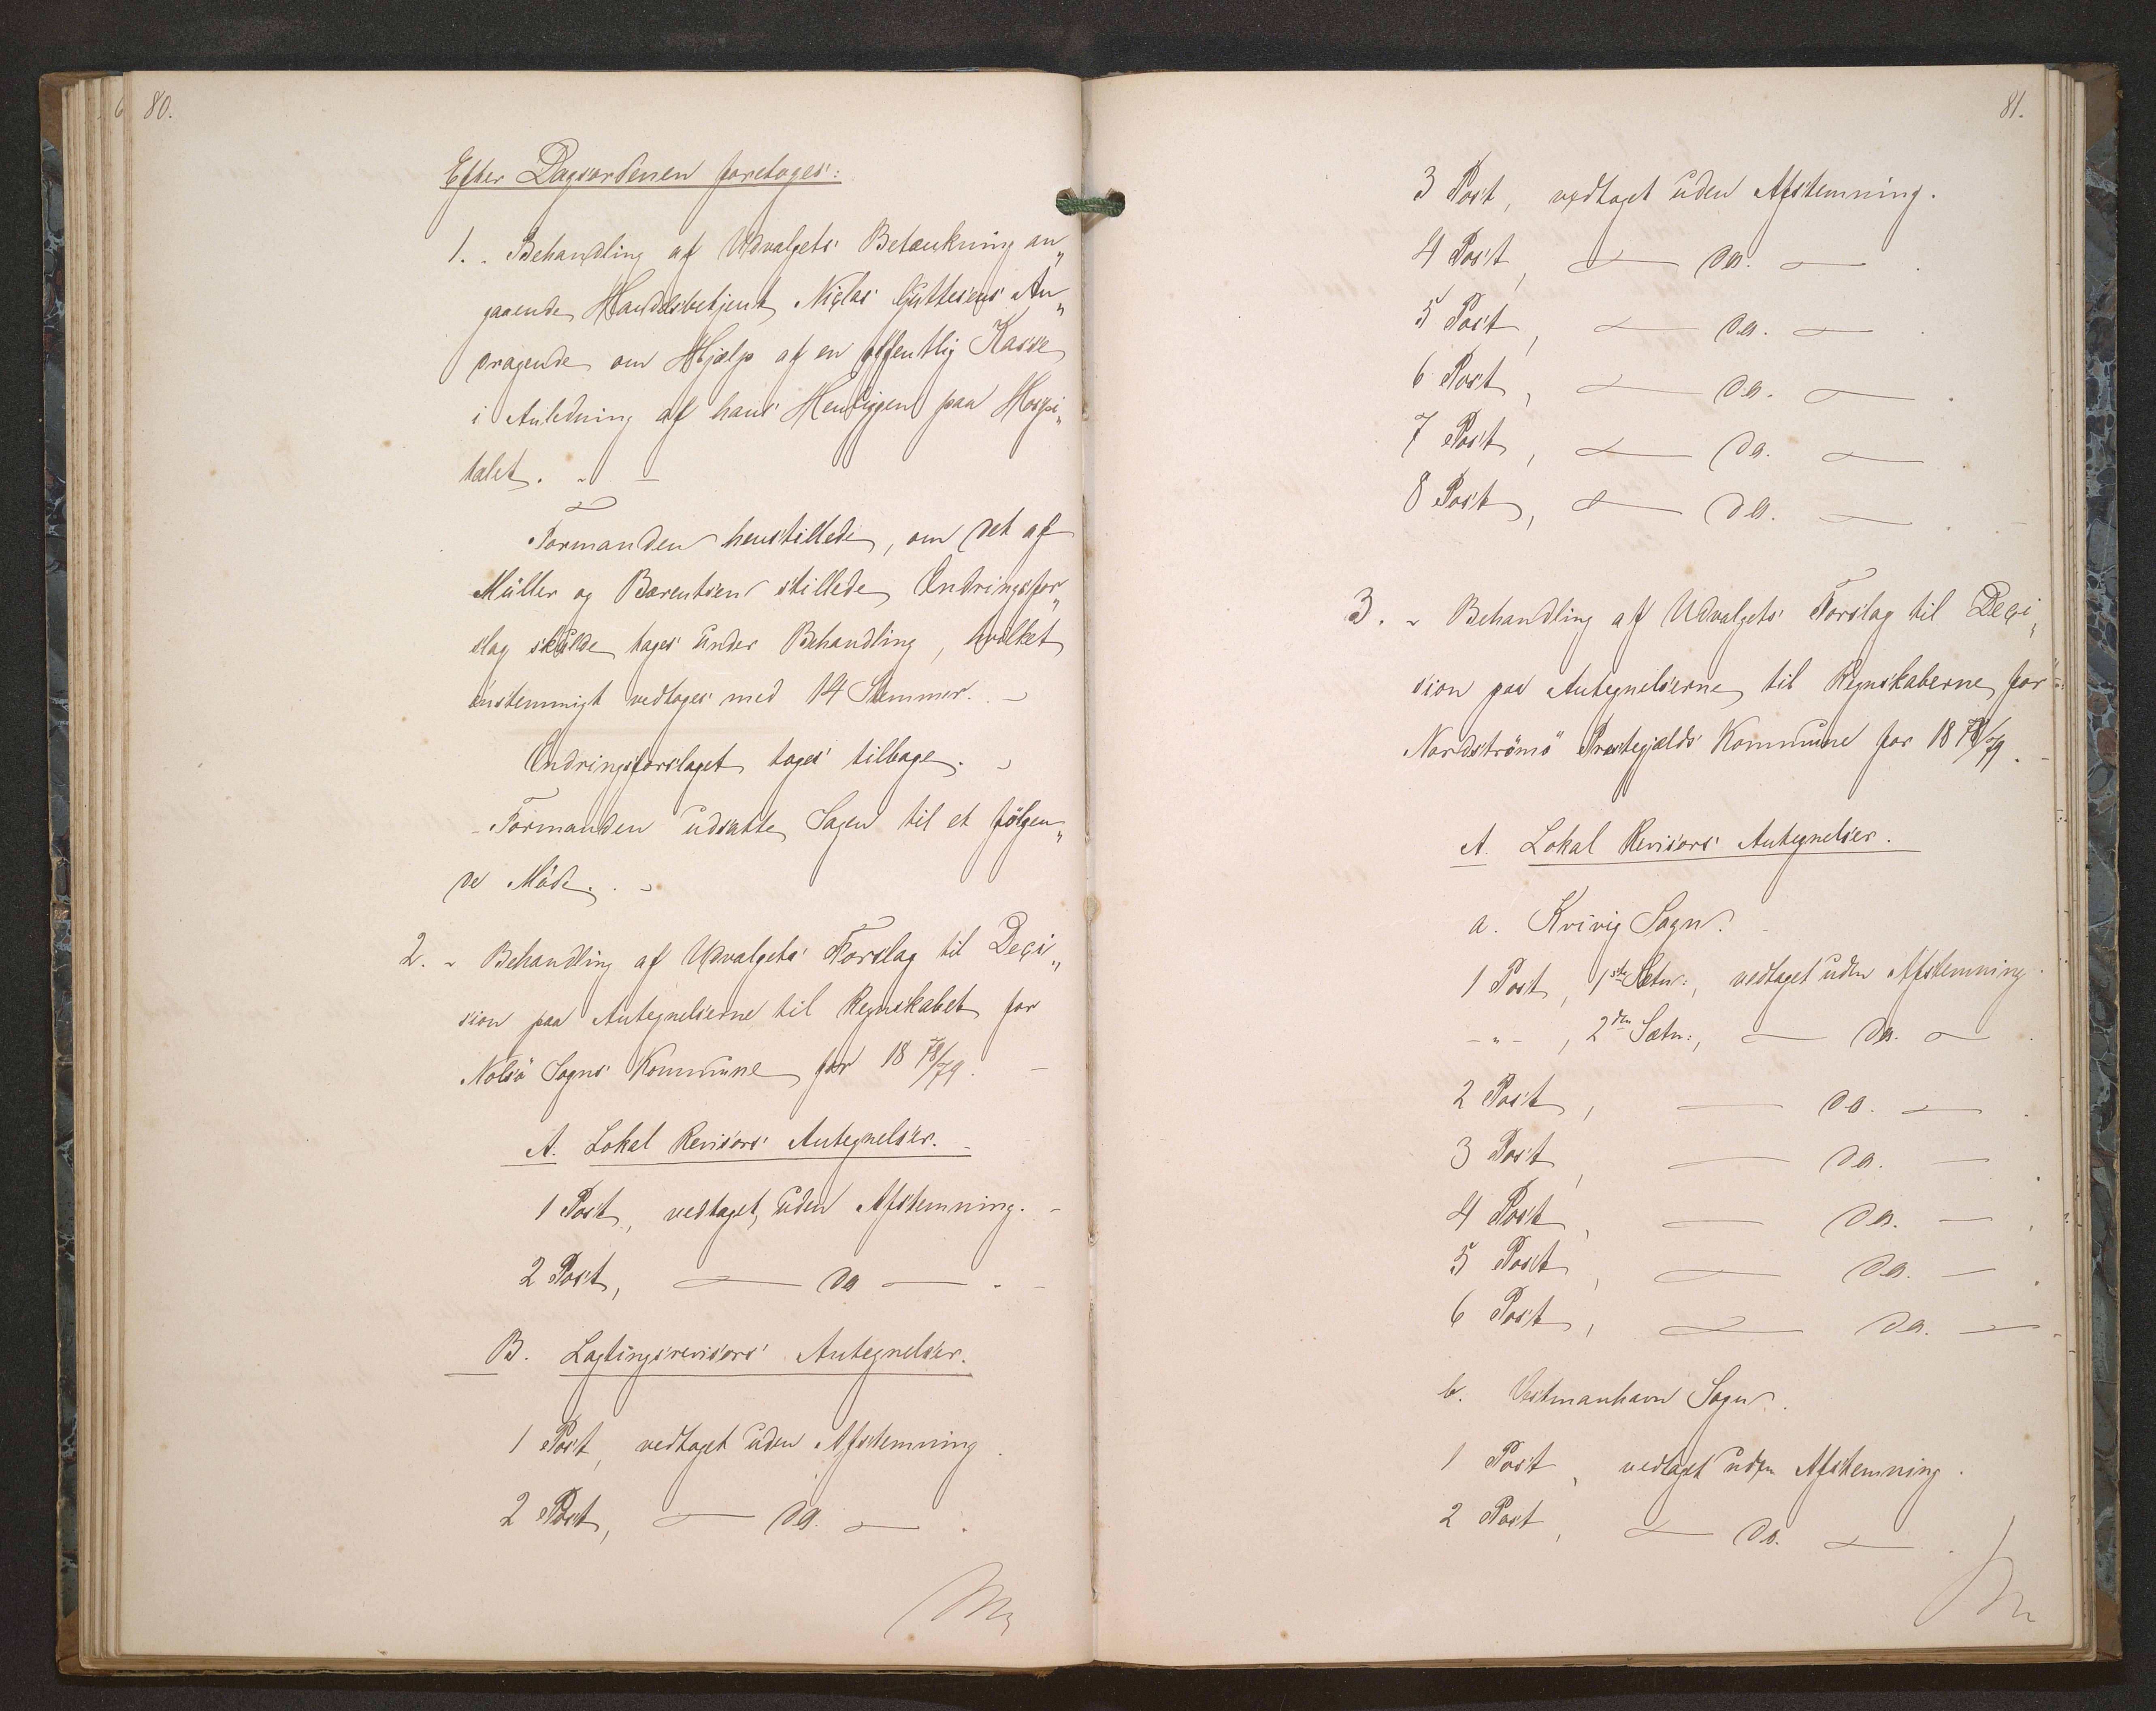 80.
Efter Dagsordenen foretoges:
1. Behandling af Udvalgets Betænkning an„
gaaende Handelsbetjent Niclas Guttesens An„
dragende om Hjælp af en offentlig Kasse
i Anledning af hans Henliggen paa Hospi„
talet. -
Formanden henstillede, om det af
Müller og Bærentsen stillede Ændringsfor„
slag skulde tages under Behandling, hvilket
enstemmigt vedtoges med 14 Stemmer. -
Ændringsforslaget toges tilbage. -
- Formanden udsatte Sagen til et følgen„
de Møde. -
2. - Behandling af Udvalgets Forslag til Deci„
sion paa Antegnelserne til Regnskabet for
Nolsö Sogns Kommune for 18 78/79. -
A. Lokal Revisors Antegnelser. -
1 Post, vedtaget uden Afstemning. -
2 Post, — do — . -
B. Lagtingsrevisors Antegnelser.
1 Post, vedtaget uden Afstemning.
2 Post, — do. — .
81.
3 Post, vedtaget uden Afstemning.
4 Post, — do. — .
5 Post, — do. — .
6 Post, — do. — .
7 Post, — do. — .
8 Post, — do. — . -
3. - Behandling af Udvalgets Forslag til Deci„
sion paa Antegnelserne til Regnskaberne for
Nordströmö Præstegjælds Kommune for 18 78/79. -
A. Lokal Revisors Antegnelser.
a. Kvivig Sogn. -
1 Post, 1ste Sætn:, vedtaget uden Afstemning.
- „ - , 2den Sætn:, — do. — .
2 Post, — do. — .
3 Post, — do. — .
4 Post, — do. — .
5 Post, — do. — .
6 Post, — do. — .
b. Vestmanhavn Sogn.
1 Post, vedtaget uden Afstemning.
2 Post, — do. — .